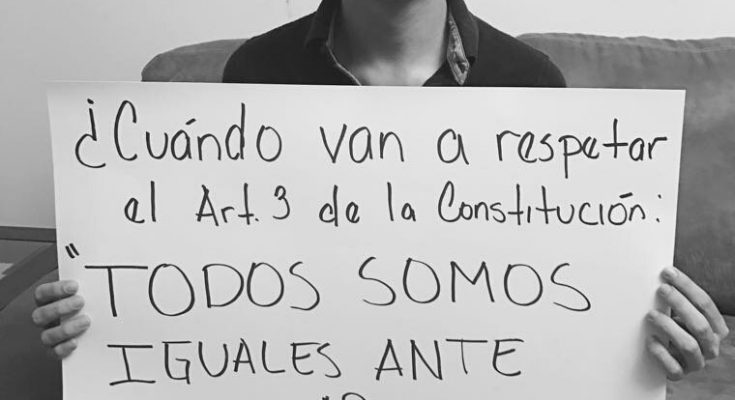 ¿Cuándo van a respetar
el Art. 3 de la Constitución:
"TODOS SOMOS
IGUALES ANTE